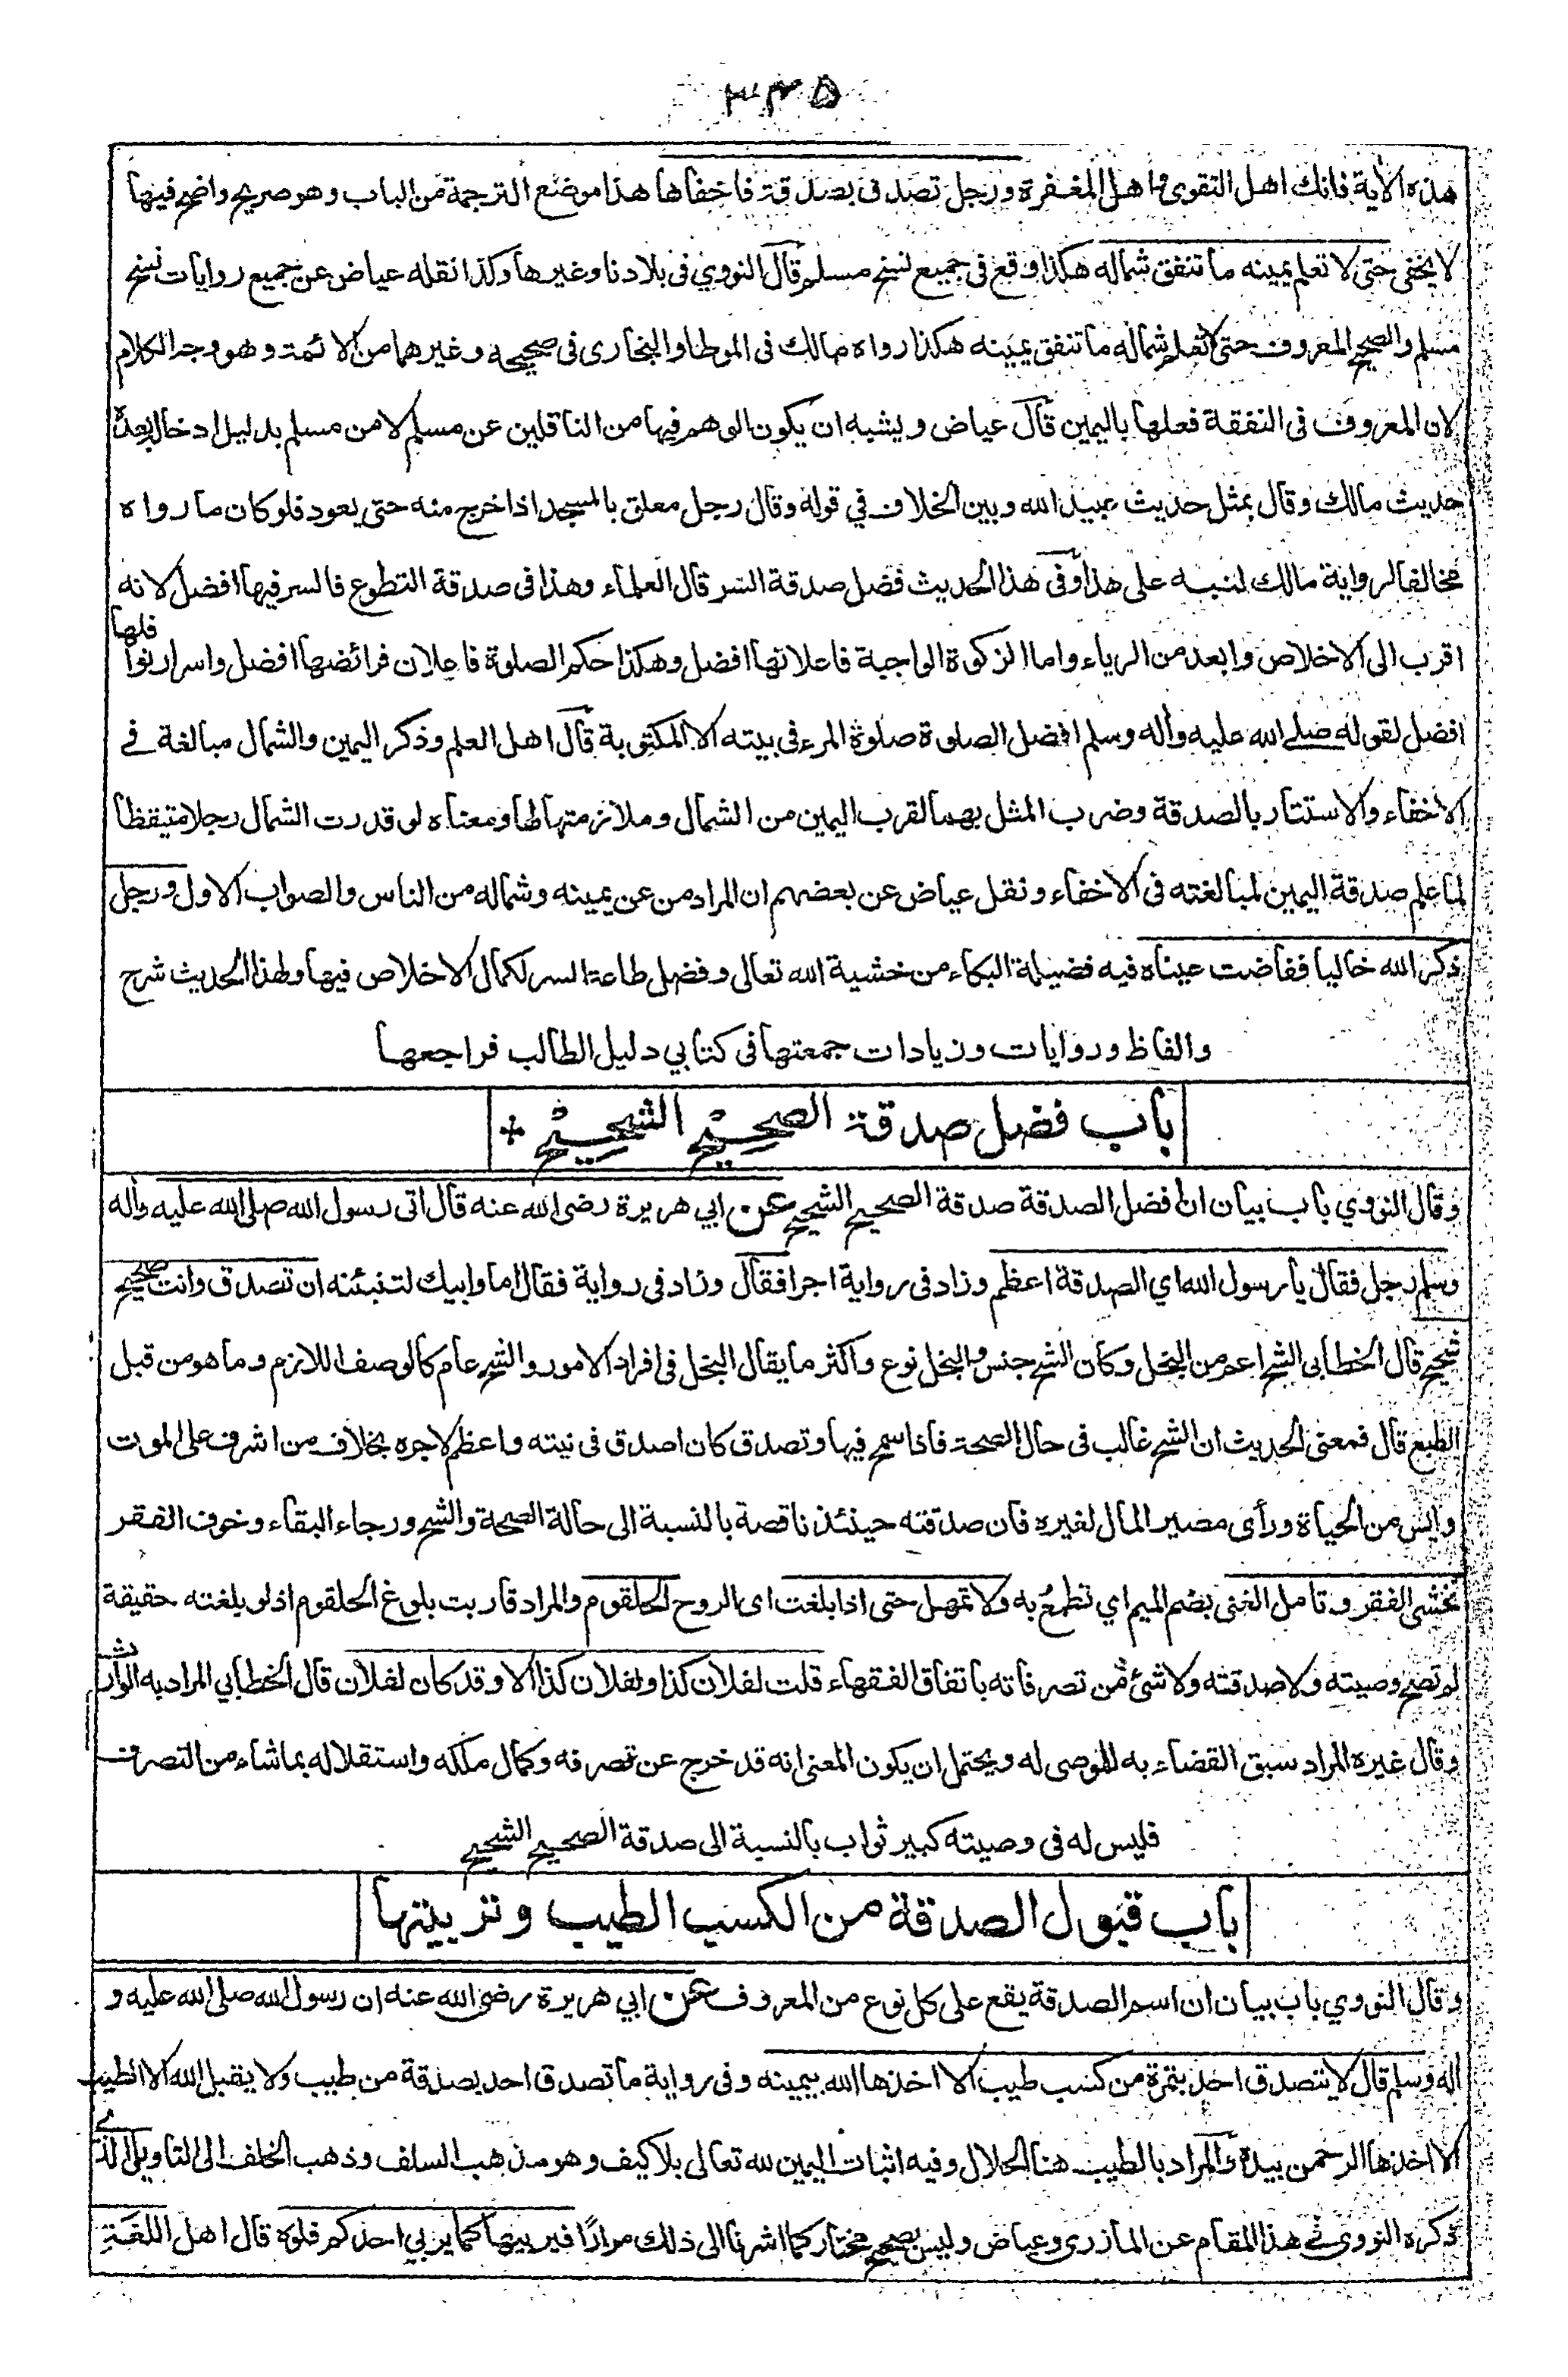 ٣٤٥
هذه الأية فانك اهل التقوى واهل المغفرة ورجل تصدق بصدقة فاخفاها هذا موضع الترجمة من الباب وهو صريح واضح فيها
لا يخفى حتى لا تعلم يمينه ما تنفق شماله هكذا وقع فى جميع نسخ مسلم قال النووي فى بلادنا وغيرها وكذا نقله عياض عن جميع روايات نسخ
مسلم والصحيح المعروف حتى لا تعلم شماله ما تنفق يمينه هكذا رواه مالك فى الموطا والبخارى فى صحيحه وغيرهما من الائمة وهو وجه الكلام
لان المعروف فى النفقة فعلها باليمين قال عياض ويشبه ان يكون الوهم فيها من الناقلين عن مسلم لا من مسلم بدليل ادخاله بعده
حديث مالك وقال بمثل حديث عبيد الله وبين الخلاف في قوله وقال رجل معلق بالمسجد اذا خرج منه حتى يعود فلو كان ما رواه
مخالفا لرواية مالك لنبه على هذا وفى هذا الحديث فضل صدقة السر قال العلماء وهذا فى صدقة التطوع فالسر فيها افضل لانه
اقرب الى الاخلاص وابعد من الرياء واما الزكوة الواجبة فاعلانها افضل وهكذا حكم الصلوة فاعلان فرائضها افضل واسرار نوافلها
افضل لقوله صلى الله عليه وأله وسلم افضل الصلوة صلوة المرء فى بيته الا المكتوبة قال اهل العلم وذكر اليمين والشمال مبالغة في
الاخفاء والاستتار بالصدقة وضرب المثل بهما لقرب اليمين من الشمال وملازمتها لها ومعناه لو قدرت الشمال رجلا متيقظا
لما علم صدقة اليمين لمبالغته فى الاخفاء ونقل عياض عن بعضهم ان المراد من عن يمينه وشماله من الناس والصواب الاول ورجل
ذكر الله خاليا ففاضت عيناه فيه فضيلة البكاء من خشية الله تعالى وفضل طاعة السر لكمال الاخلاص فيها ولهذا الحديث شرح
والفاظ وروايات وزيادات جمعتها فى كتابي دليل الطالب فراجعها
باب فضل صدقة الصحيح الشحيح +
وقال النووي باب بيان ان افضل الصدقة صدقة الصحيح الشحيح عن ابي هريرة رضى الله عنه قال اتى رسول الله صلى الله عليه وأله
وسلم رجل فقال يا رسول الله اي الصدقة اعظم وزاد فى رواية اجرا فقال وزاد فى رواية فقال اما وابيك لتنبئنه ان تصدق وانت صحيح
شحيح قال الخطابى الشح اعم من البخل وكان الشح جنس والبخل نوع واكثر ما يقال البخل فى افراد الامور والشح عام كالوصف اللازم وما هو من قبل
الطبع قال فمعنى الحديث ان الشح غالب فى حال الصحة فاذا سمح فيها وتصدق كان اصدق فى نيته واعظم لاجره بخلاف من اشرف على الموت
وايس من الحياة ورأى مصير المال لغيره فان صدقته حينئذ ناقصة بالنسبة الى حالة الصحة والشح ورجاء البقاء وخوف الفقر
تخشى الفقر وتامل الغنى بضم الميم اي تطمع به ولا تمهل حتى اذا بلغت اى الروح الحلقوم والمراد قاربت بلوغ الحلقوم اذ لو بلغته حقيقة
لم تصح وصيته ولا صدقته ولا شئ من تصرفاته باتفاق الفقهاء قلت لفلان كذا ولفلان كذا الا وقد كان لفلان قال الخطابي المراد به الوارث
وقال غيره المراد سبق القضاء به للموصى له ويحتمل ان يكون المعنى انه قد خرج عن تصرفه وكمال ملكه واستقلاله بما شاء من التصرف
فليس له فى وصيته كبير ثواب بالنسبة الى صدقة الصحيح الشحيح
باب قبول الصدقة من الكسب الطيب وتربيتها
وقال النووي باب بيان ان اسم الصدقة يقع على كل نوع من المعروف عن ابي هريرة رضى الله عنه ان رسول الله صلى الله عليه و
اله وسلم قال لا يتصدق احد بتمرة من كسب طيب الا اخذها الله بيمينه وفى رواية ما تصدق احد بصدقة من طيب ولا يقبل الله الا الطيب
الا اخذها الرحمن بيده والمراد بالطيب هنا الحلال وفيه اثبات اليمين لله تعالى بلا كيف وهو مذهب السلف وذهب الخلف الى التاويل الذي
ذكره النووى في هذا المقام عن المازرى وعياض وليس بصحيح مختار كما اشرنا الى ذلك مرارًا فيربيها كما يربي احدكم فلوه قال اهل اللغة